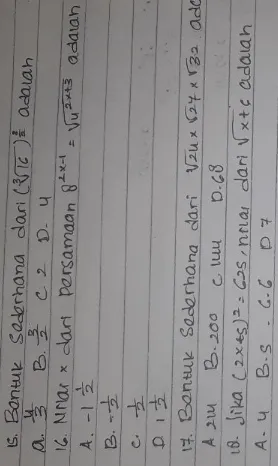 15. Bentuk Sederhana dari (∛16)^(3/2) adalah
a. 4/3 B. 3/2 C 2 D. 4
16. Nilai x dari persamaan 8^(2x-1) = √4^(2x+3) adalah
A. -1 1/2
B. -1/2
C. 1/2
D 1 1/2
17. Bentuk Sederhana dari √24 x √27 x √32 ada
A 214 B. 200 C. 144 D. 68
18. Jika (2x+5)² = 625, nilai dari √x+6 adalah
A. 4 B. 5 C. 6 D 7